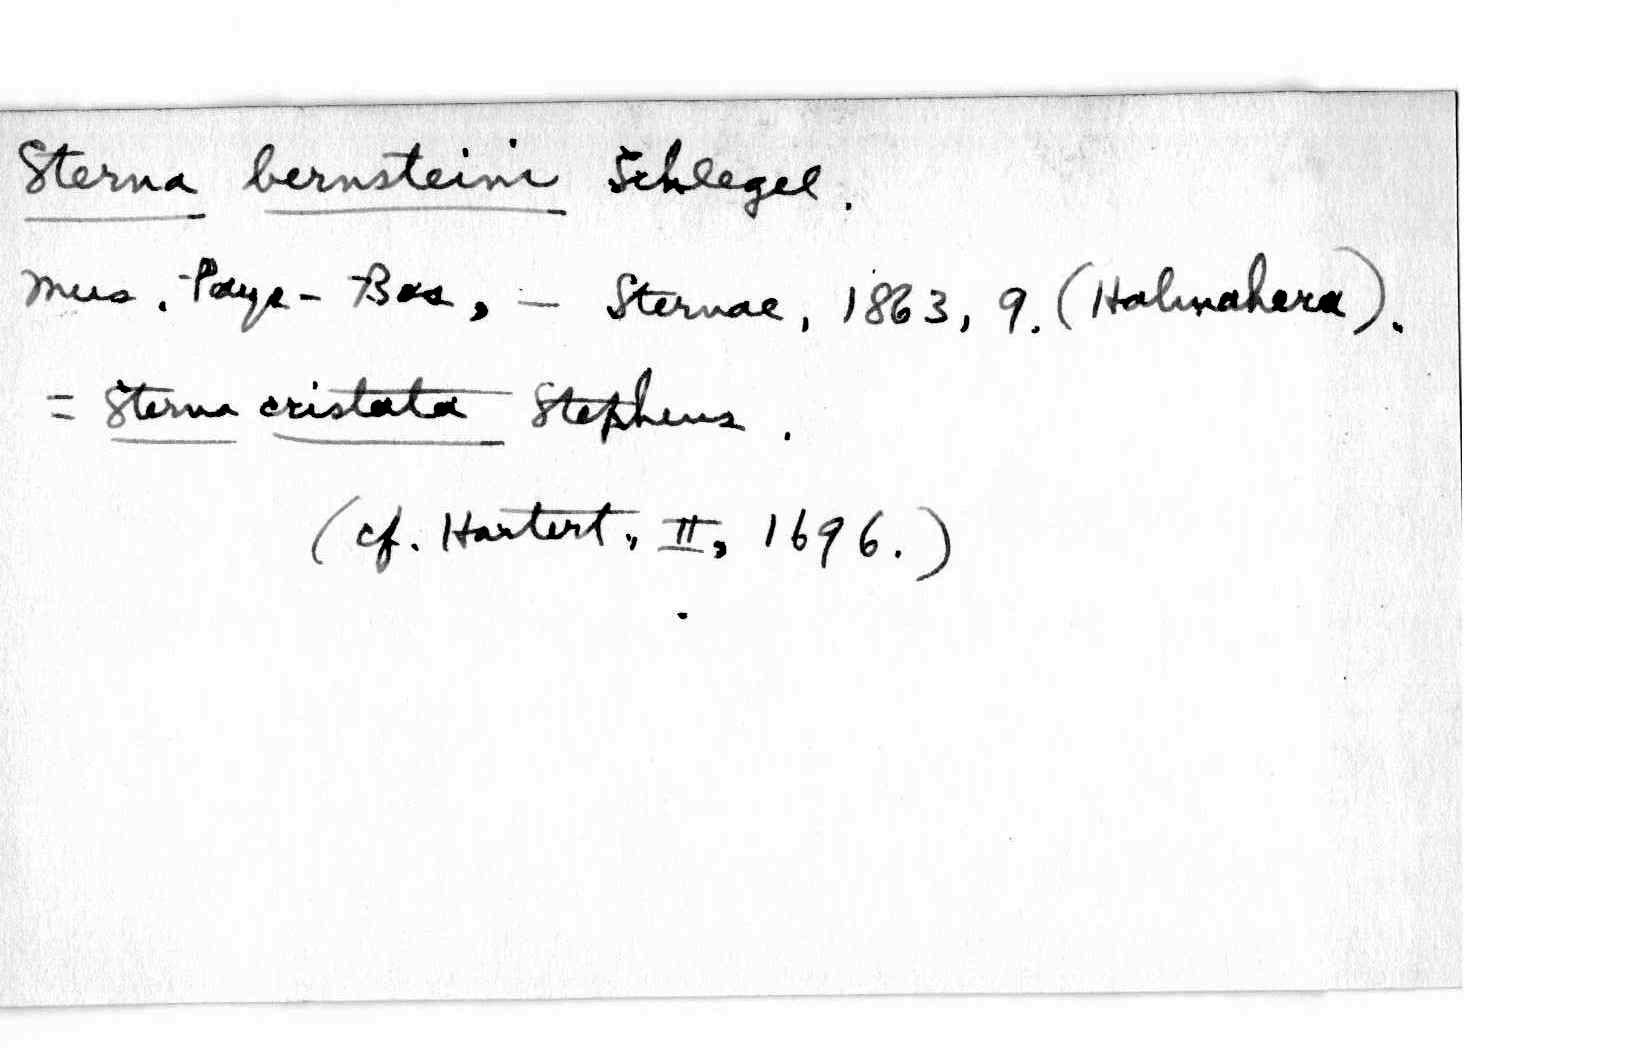 Sterna bernsteini Schlegel.
Mus. Pays-Bas, — Sternae, 1863, 9. (Halmahera).
= Sterna cristata Stephens.
(cf. Hartert, II, 1696.)